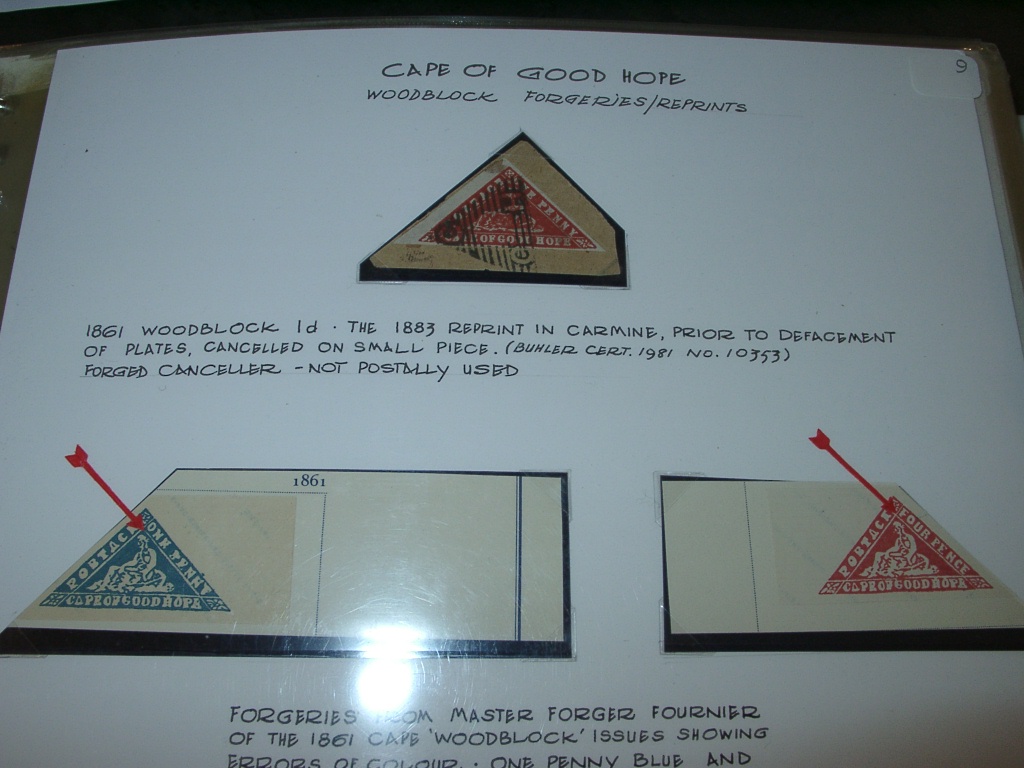 9
CAPE OF GOOD HOPE
WOODBLOCK FORGERIES/REPRINTS
PENNY
OF GOOD HOPE
1861 WOODBLOCK 1d · THE 1883 REPRINT IN CARMINE, PRIOR TO DEFACEMENT
OF PLATES, CANCELLED ON SMALL PIECE. (BUHLER CERT. 1981 NO. 10353)
FORGED CANCELLER - NOT POSTALLY USED
1861
POSTAG ONE PENNY
CAPE OF GOOD HOPE
POSTAG FOUR PENCE
CAPE OF GOOD HOPE
FORGERIES FROM MASTER FORGER FOURNIER
OF THE 1861 CAPE 'WOODBLOCK' ISSUES SHOWING
ERRORS OF COLOUR. · ONE PENNY BLUE AND